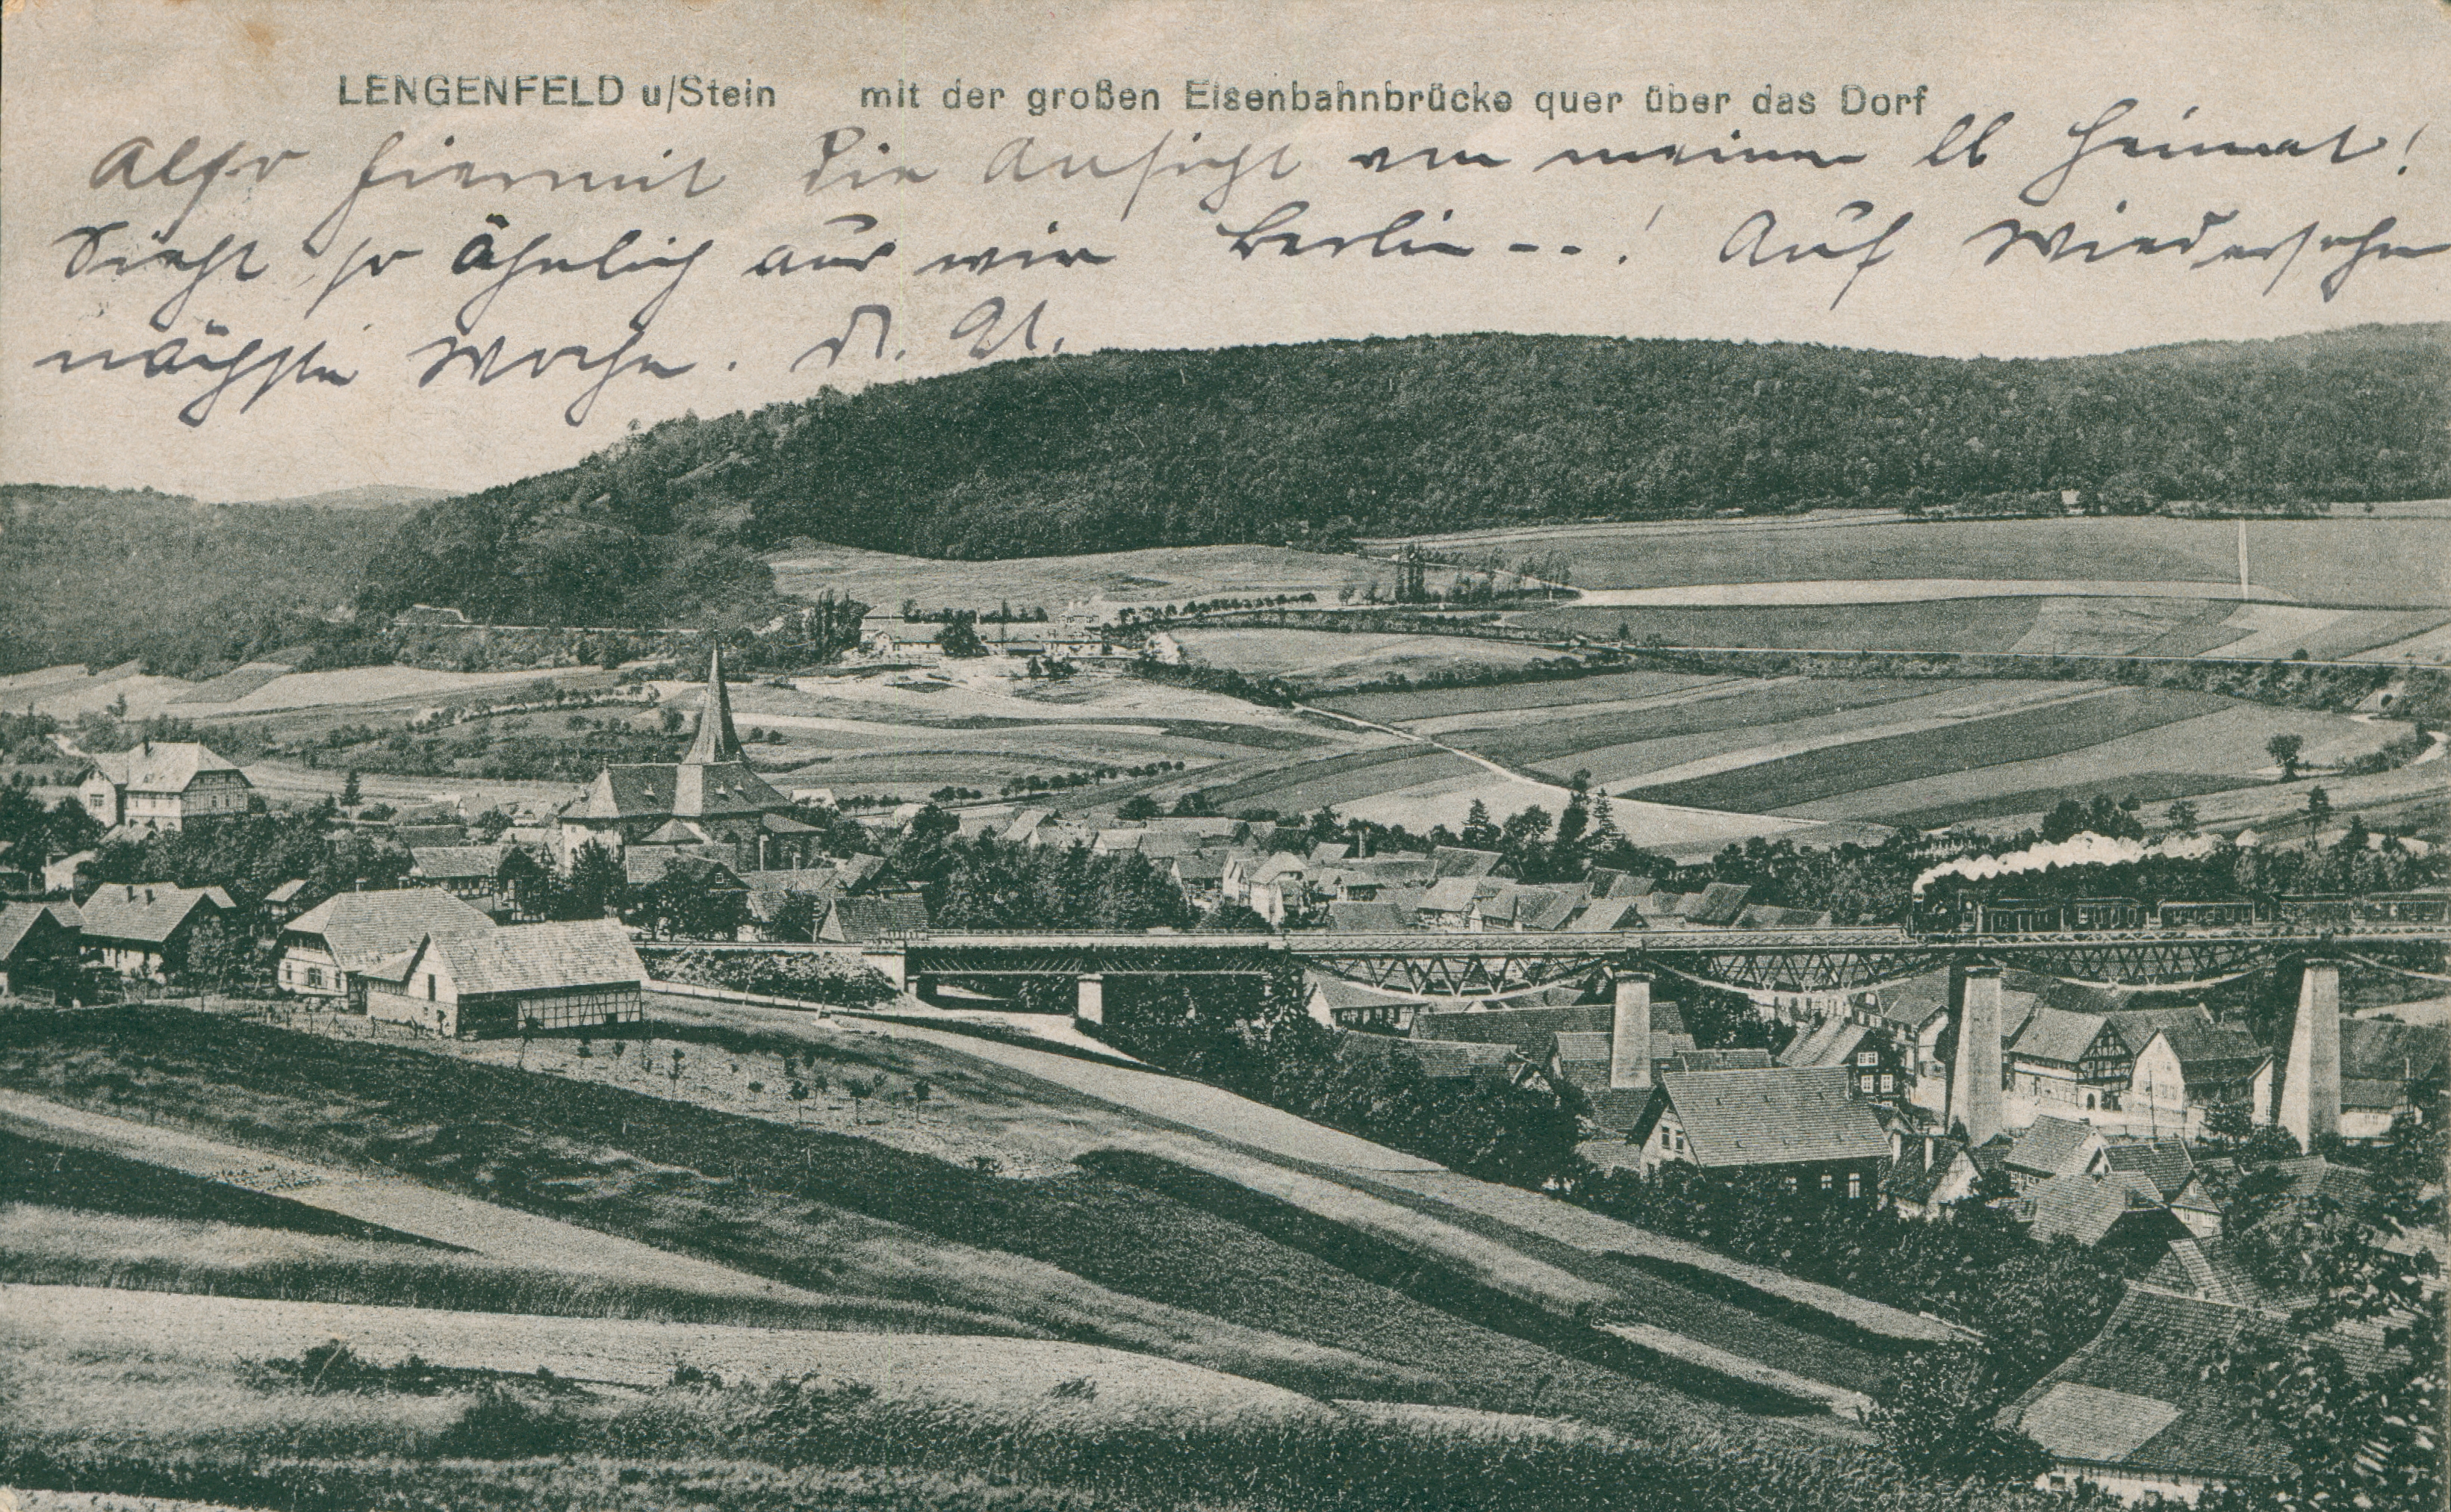 LENGENFELD u/Stein mit der großen Eisenbahnbrücke quer über das Dorf
Also hiermit die Ansicht von meiner lb Heimat!
Sieht so ähnlich aus wie Berlin --! Auf Wiedersehn
nächste Woche. D. O.